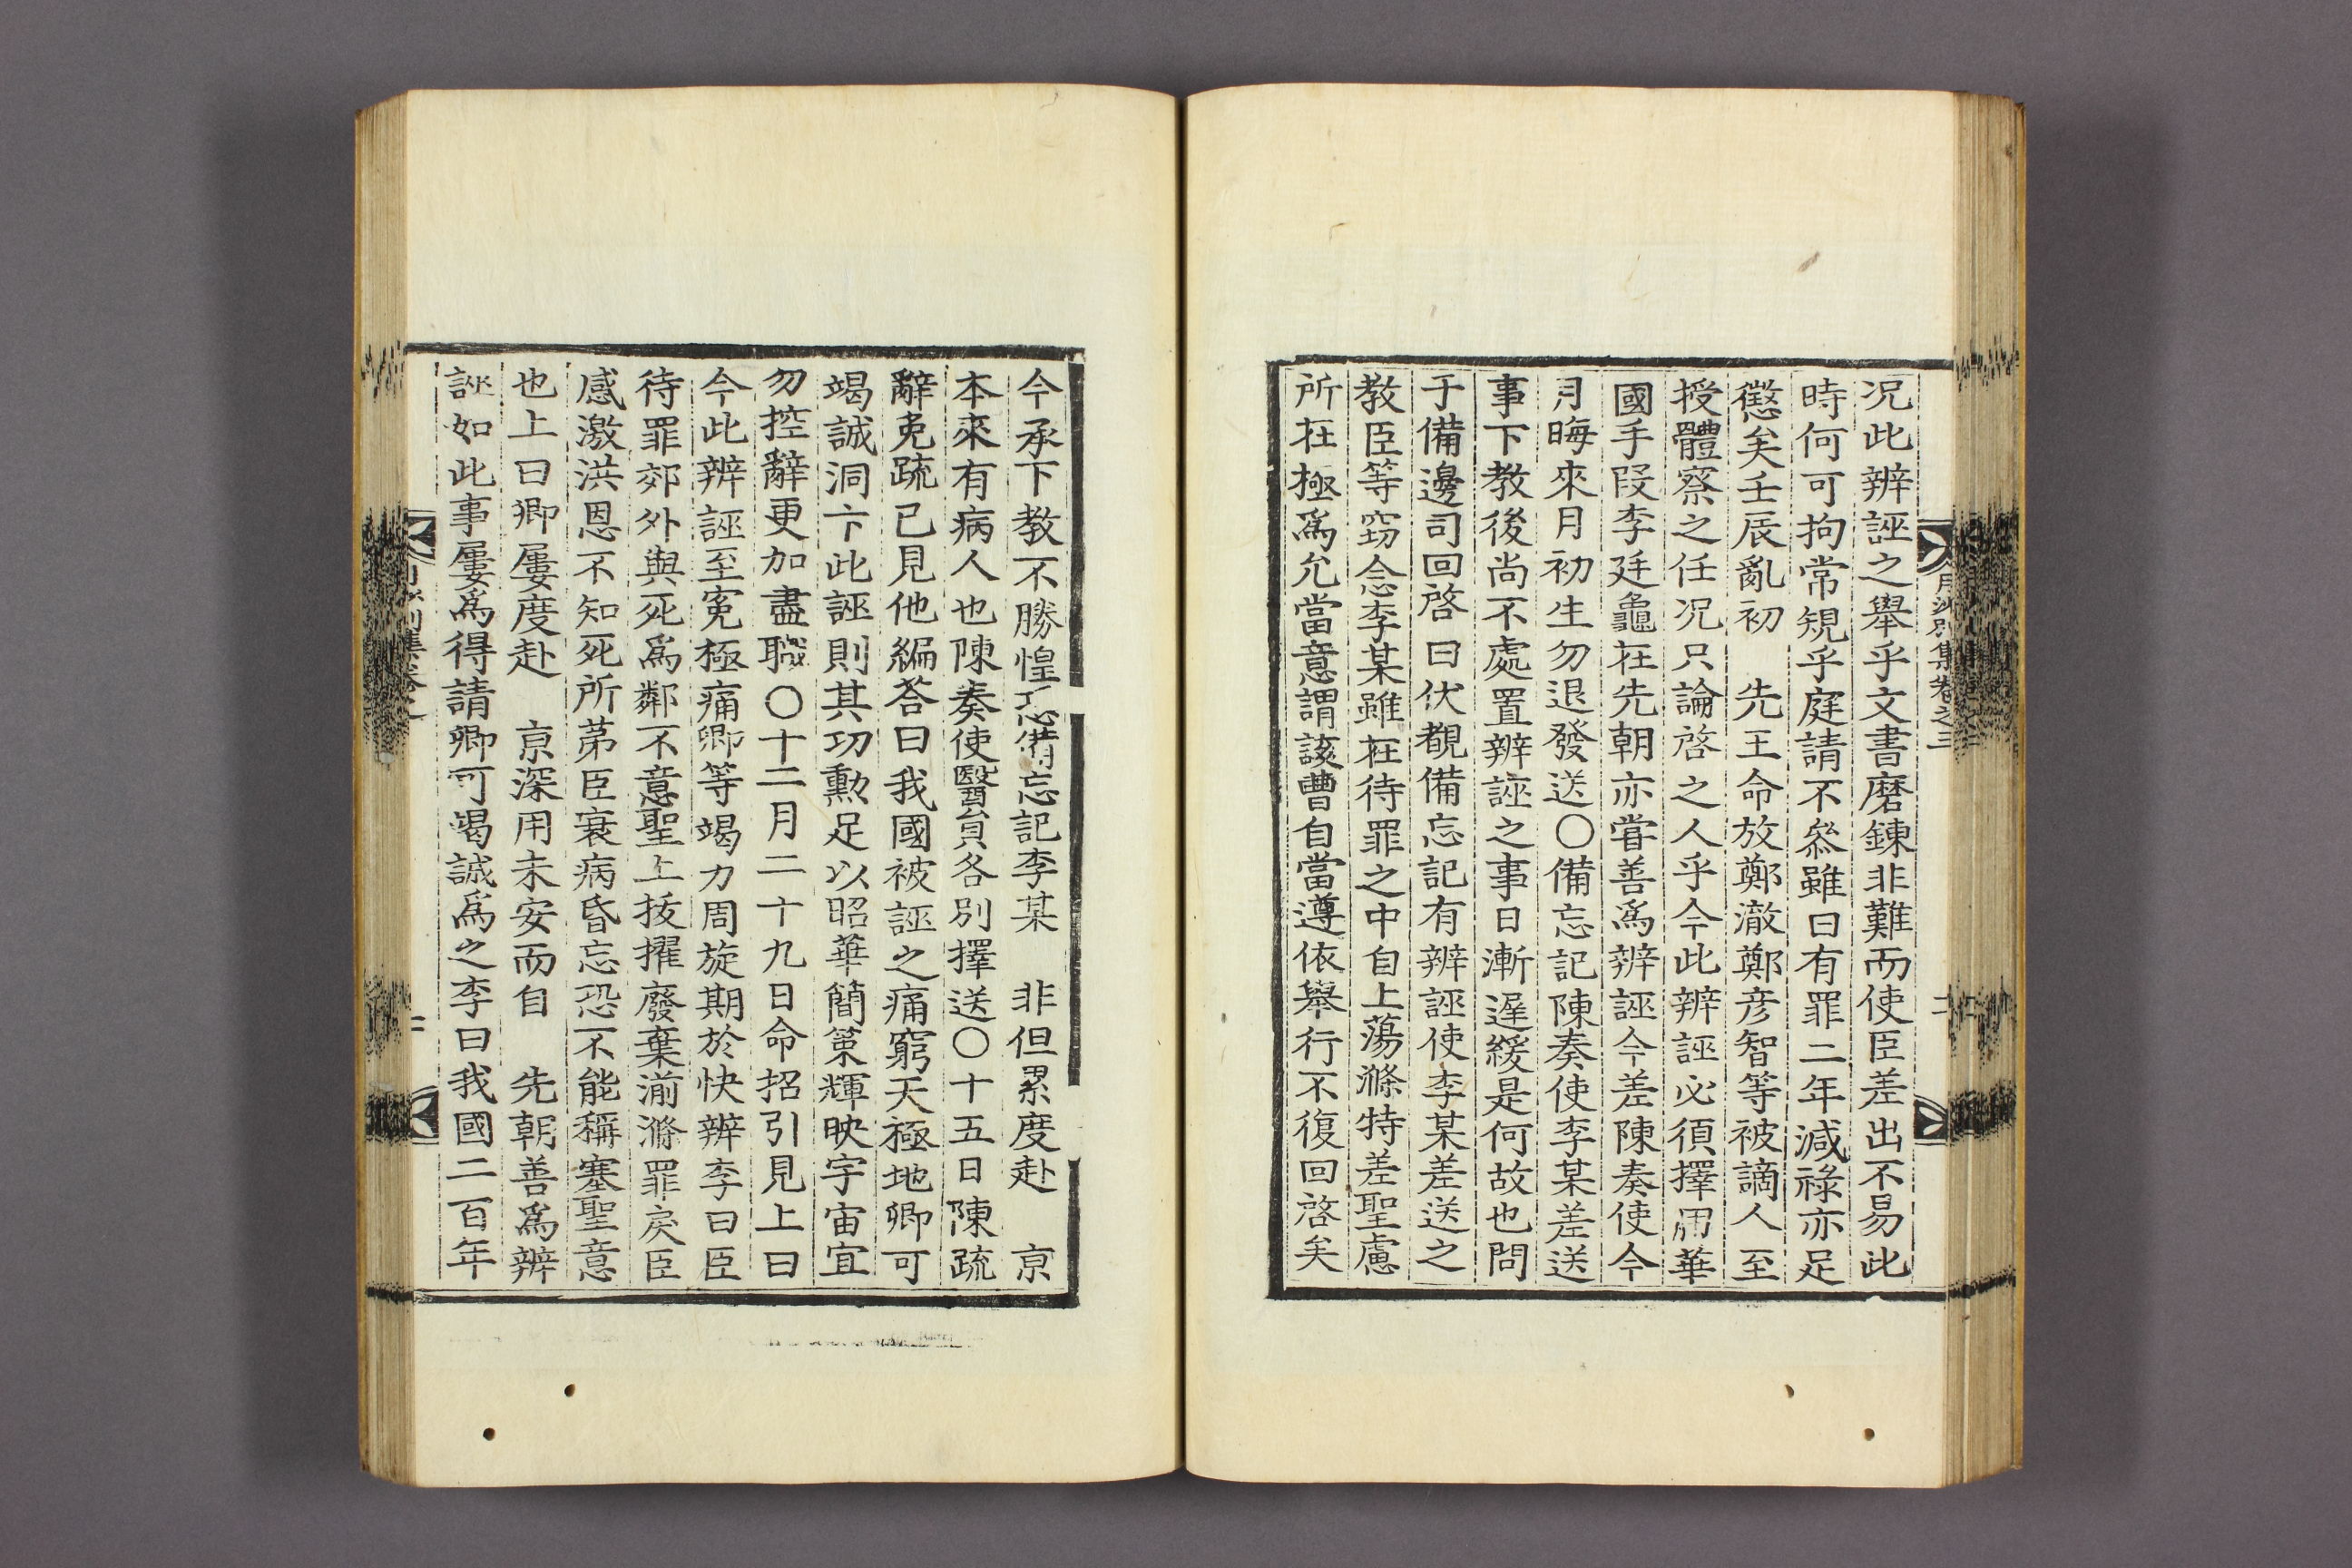 況此辨誣之舉乎文書磨鍊非難而使臣差出不易此
時何可拘常規乎庭請不叅雖曰有罪二年減祿亦足
懲矣壬辰亂初　先王命放鄭澈鄭彦智等被謫人至
授體察之任況只論啓之人乎今此辨誣必須擇用華
國手段李廷龜在先朝亦嘗善爲辨誣今差陳奏使今
月晦來月初生勿退發送〇備忘記陳奏使李某差送
事下教後尚不處置辨誣之事日漸遲緩是何故也問
于備邊司回啓　曰伏覩備忘記有辨誣使李某差送之
教臣等窃念李某雖在待罪之中自上蕩滌特差聖慮
所在極爲允當意謂該曹自當遵依舉行不復回啓矣
月沙別集卷之三
今承下教不勝惶恐備忘記李某　非但累度赴　京
本來有病人也陳奏使醫員各別擇送〇十五日陳疏
辭免疏已見他編荅曰我國被誣之痛窮天極地卿可
竭誠洞卞此誣則其功勳足以昭華簡策輝映宇宙宜
勿控辭更加盡職〇十二月二十九日命招引見上曰
今此辨誣至寃極痛卿等竭力周旋期於快辨李曰臣
待罪郊外與死爲鄰不意聖上拔擢廢棄湔滌罪戾臣
感激洪恩不知死所苐臣衰病昏忘恐不能稱塞聖意
也上曰卿屢度赴　京深用未安而自　先朝善爲辨
誣如此事屢爲得請卿可竭誠爲之李曰我國二百年